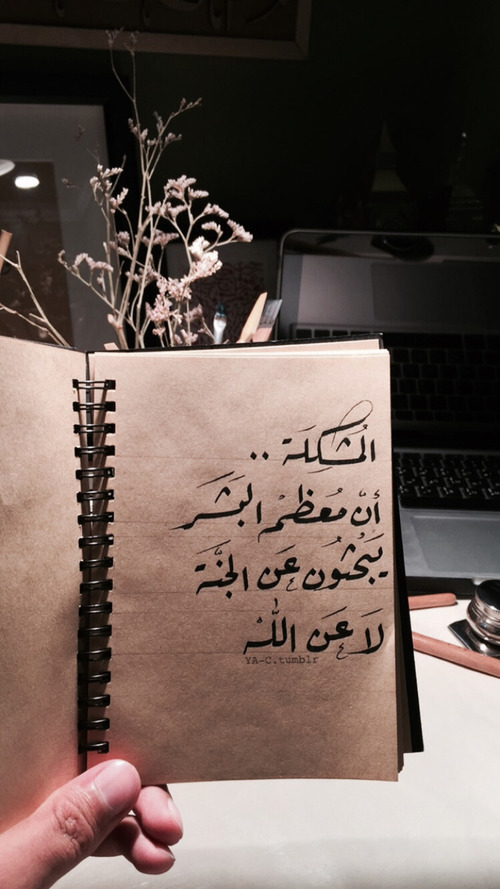 المُشكِلَة ..
أنّ مُعظمْ البَشَر
يَبْحثُون عَن الجنَّة
لَا عَن اللّٰهْ
YA-C.tumblr